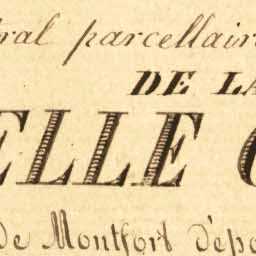 ral parcellaire
DE LA
ELLE
de Montfort dépo